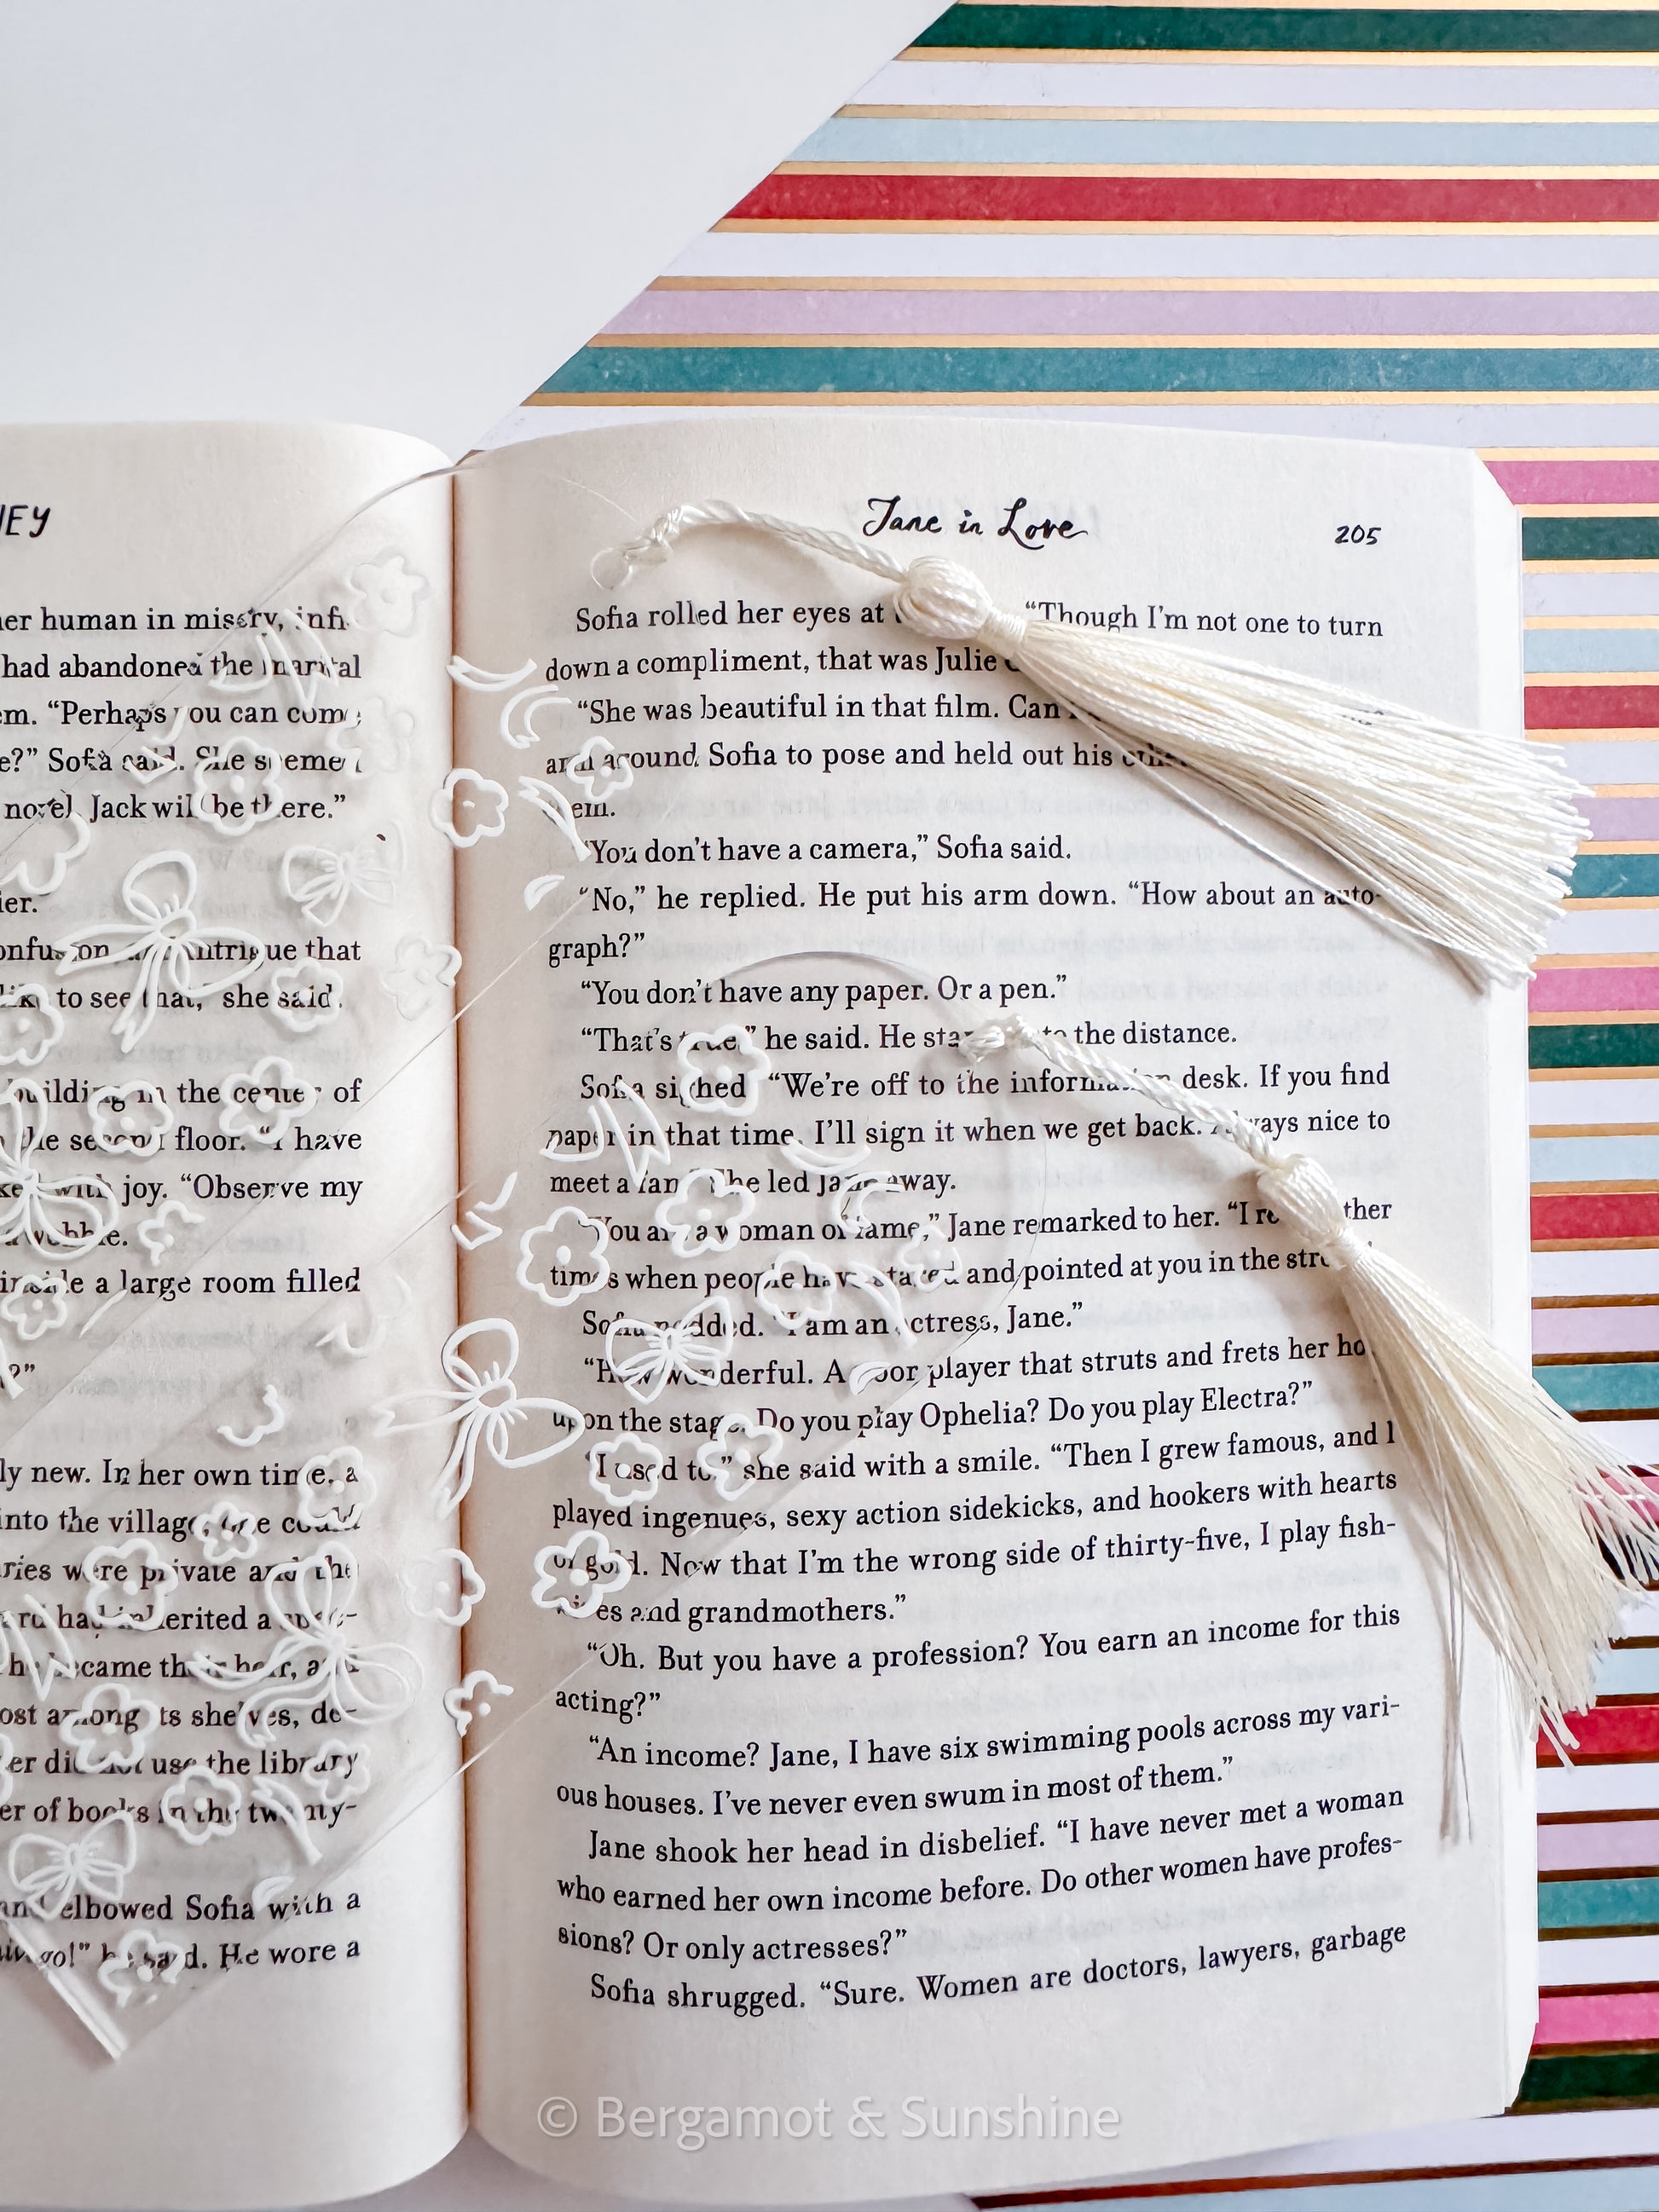 Jane in Love
205
her human in misery, infi-
had abandoned the marital
"Perhaps you can come
Sofia said. She seemed
novel. Jack will be there."
that
like to see that," she said.
building in the center of
the second floor. "I have
with joy. "Observe my
a wobble.
inside a large room filled
new. In her own time, a
into the village, one could
were private and the
had inherited a
became their heir, and
among its shelves, de-
did not use the library
of books in the twenty-
elbowed Sofia with a
he said. He wore a
Sofia rolled her eyes at "Though I'm not one to turn
down a compliment, that was Julie
"She was beautiful in that film. Can
arm around Sofia to pose and held out his other
them.
"You don't have a camera," Sofia said.
"No," he replied. He put his arm down. "How about an auto-
graph?"
"You don't have any paper. Or a pen."
"That's true," he said. He stared into the distance.
Sofia sighed. "We're off to the information desk. If you find
paper in that time, I'll sign it when we get back. Always nice to
meet a fan." She led Jane away.
"You are a woman of fame," Jane remarked to her. "I other
times when people have stared and pointed at you in the
Sofia nodded. "I am an actress, Jane."
"How wonderful. A poor player that struts and frets her
upon the stage. Do you play Ophelia? Do you play Electra?"
"I used to," she said with a smile. "Then I grew famous, and I
played ingenues, sexy action sidekicks, and hookers with hearts
of gold. Now that I'm the wrong side of thirty-five, I play fish-
wives and grandmothers."
"Oh. But you have a profession? You earn an income for this
acting?"
"An income? Jane, I have six swimming pools across my vari-
ous houses. I've never even swum in most of them."
Jane shook her head in disbelief. "I have never met a woman
who earned her own income before. Do other women have profes-
sions? Or only actresses?"
Sofia shrugged. "Sure. Women are doctors, lawyers, garbage
© Bergamot & Sunshine